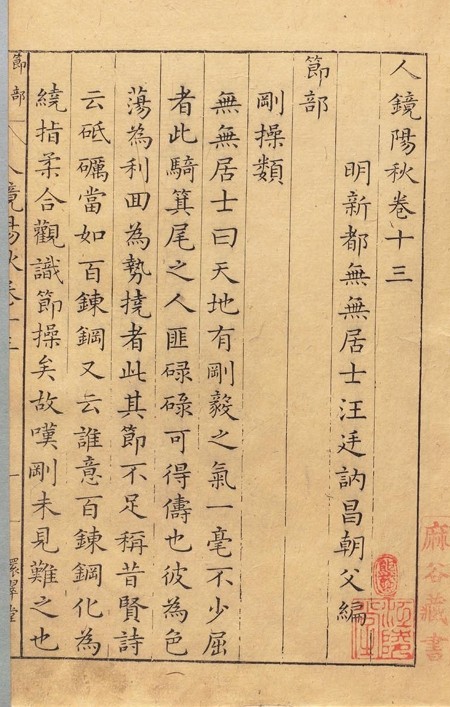 人鏡陽秋卷十三
明新都無無居士汪廷訥昌朝父編
節部
剛操類
無無居士曰天地有剛毅之氣一毫不少屈
者此騎箕尾之人匪碌碌可得儔也彼為色
蕩為利囬為勢撓者此其節不足稱昔賢詩
云砥礪當如百鍊鋼又云誰意百鍊鋼化為
繞指柔合觀識節操矣故嘆剛未見難之也
節部
人鏡陽秋卷十三
一
環翠堂
麻谷藏書